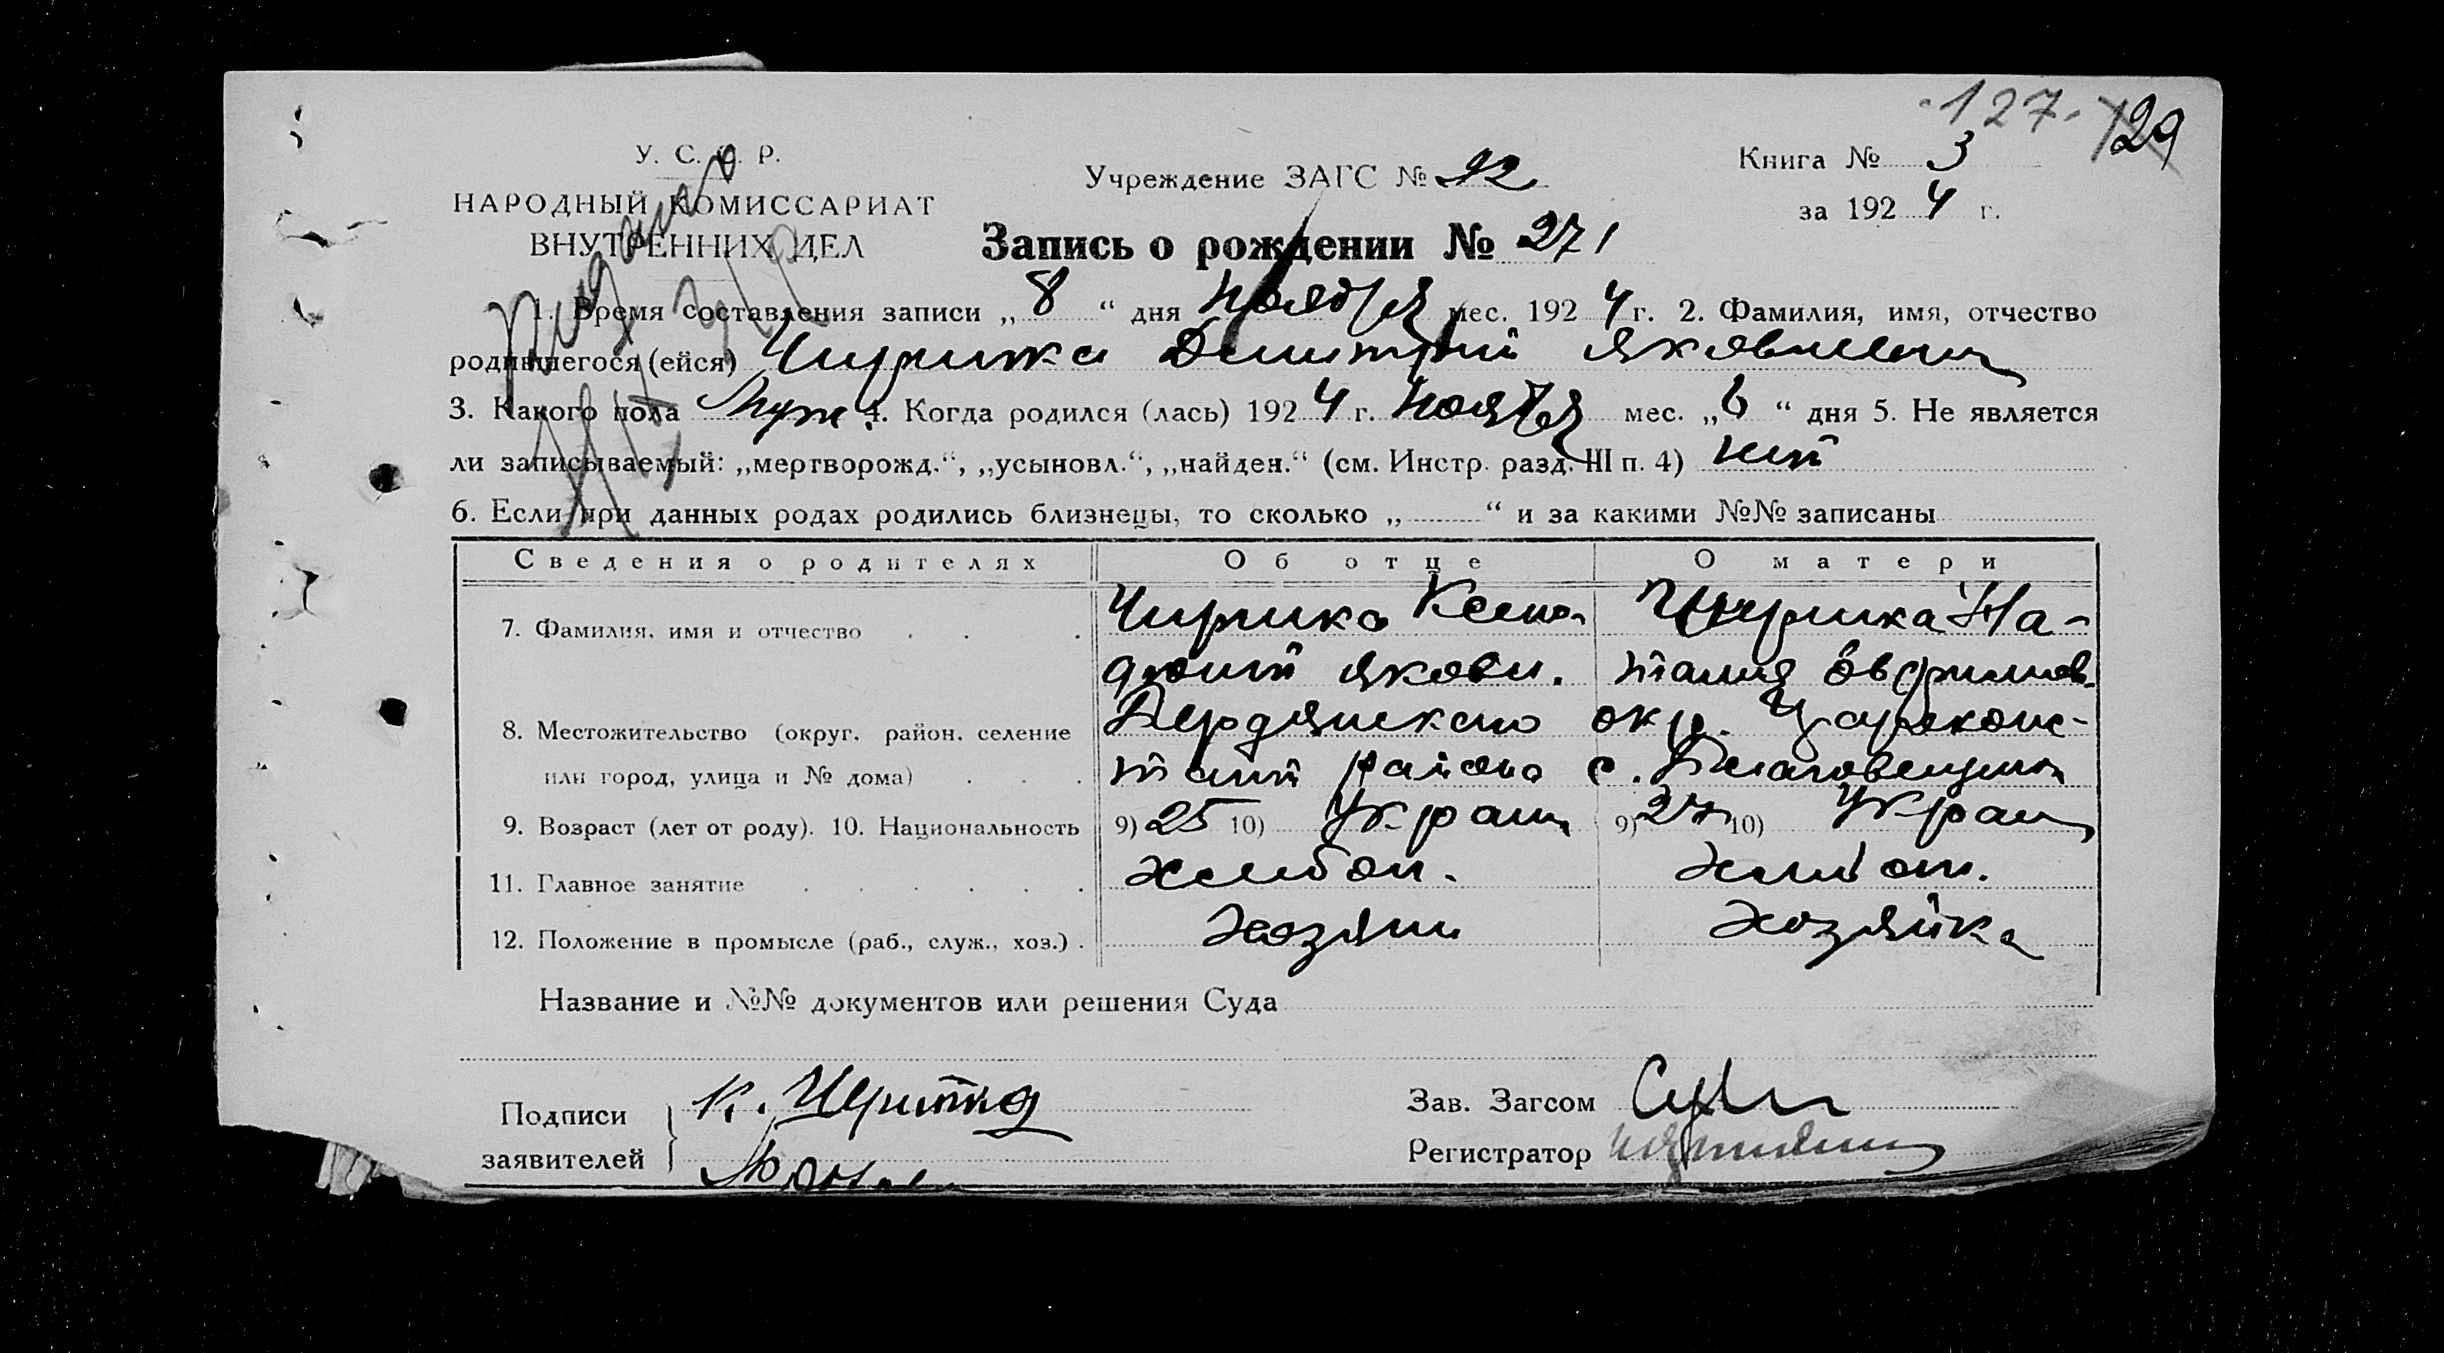 127. 129
У. С. С. Р.
НАРОДНЫЙ КОМИССАРИАТ
ВНУТРЕННИХ ДЕЛ
Учреждение ЗАГС № 92
Книга № 3
за 1924 г.
Запись о рождении № 271
1. Время составления записи „8“ дня Ноября мес. 1924 г. 2. Фамилия, имя, отчество
родившегося (ейся) Чирика Димитрий Яковлевич
3. Какого пола Муж. 4. Когда родился (лась) 1924 г. Ноября мес. „6“ дня 5. Не является
ли записываемый: „мертворожд.“, „усыновл.“, „найден.“ (см. Инстр. разд. III п. 4) нет
6. Если при данных родах родились близнецы, то сколько „ “ и за какими №№ записаны
Сведения о родителях Об отце О матери
7. Фамилия, имя и отчество Чирика Чирика На-
Яковл. талия Евфимов.
8. Местожительство (округ, район, селение Бердянского окр. Цареконс-
или город, улица и № дома) тант района с. Благовещен
9. Возраст (лет от роду). 10. Национальность 9) 25 10) Украин 9) 27 10) Украин
11. Главное занятие хлебоп. хлебоп.
12. Положение в промысле (раб., служ., хоз.) хозяин хозяйка
Название и №№ документов или решения Суда
Подписи К.
заявителей
Зав. Загсом
Регистратор